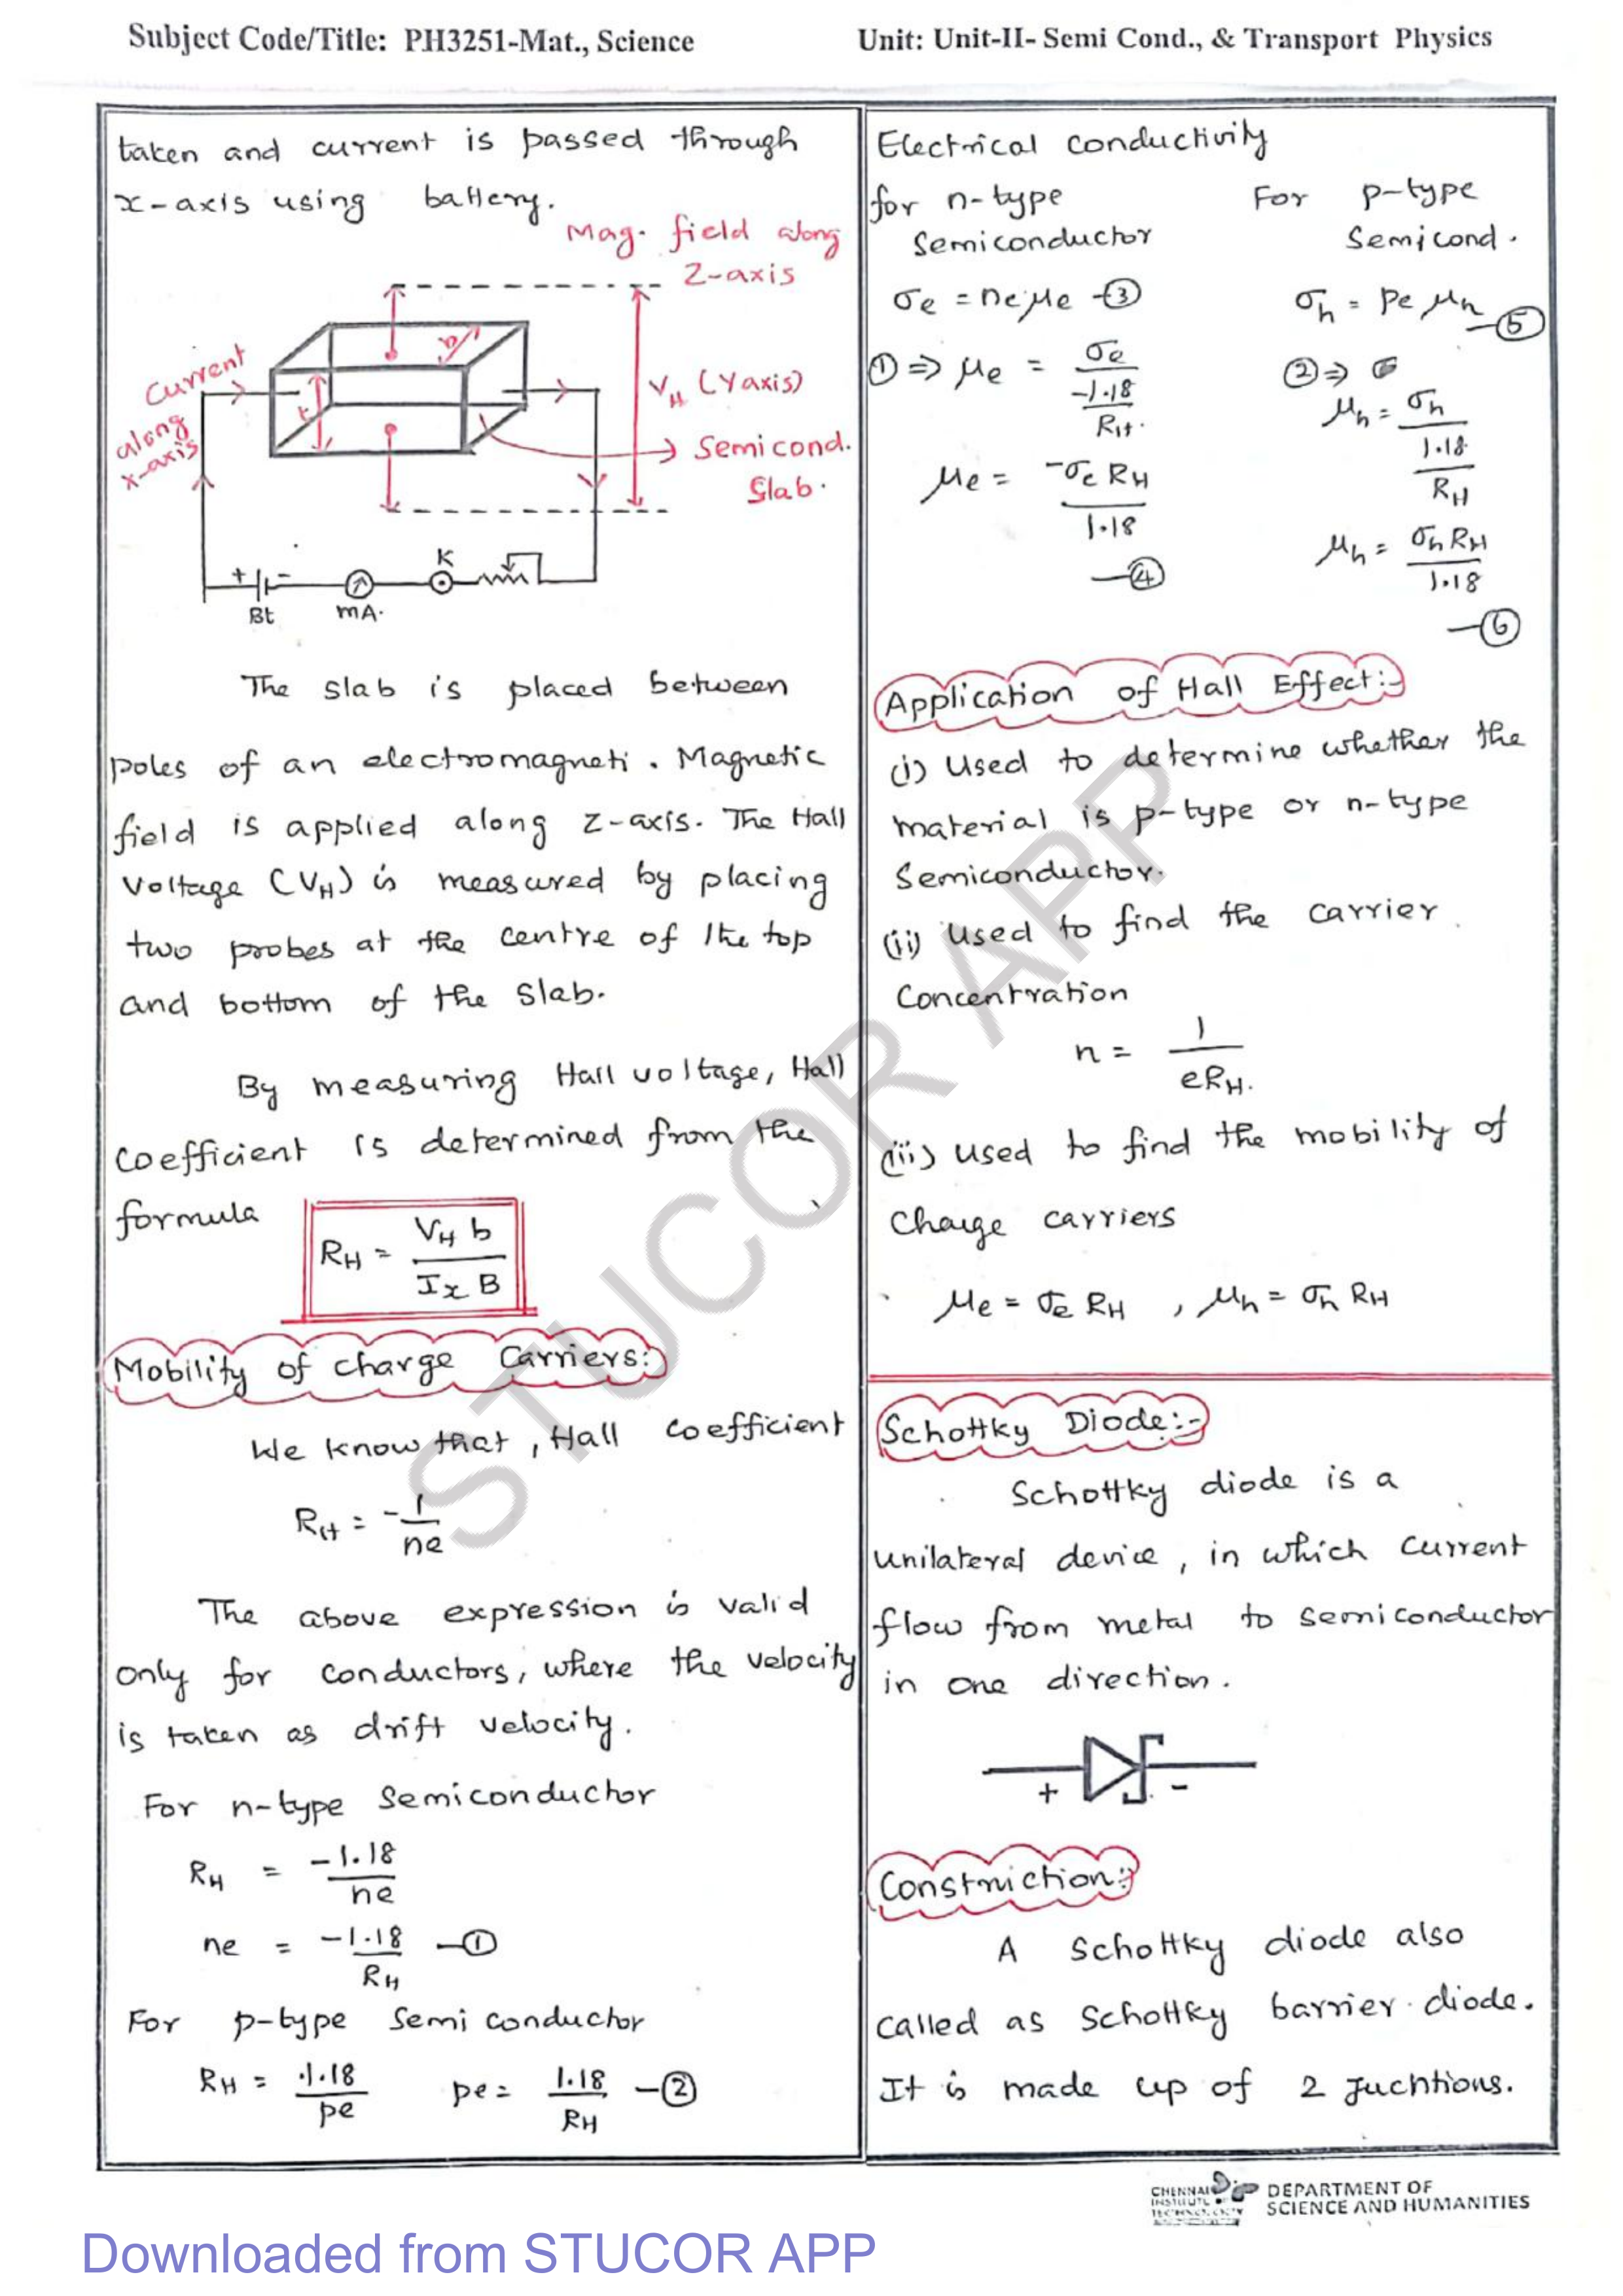 Subject Code/Title: PH3251-Mat., Science
Unit: Unit-II- Semi Cond., & Transport Physics
taken and current is passed through
x-axis using battery.
Mag. field along
Z-axis
Current
along
x-axis
b
t
V_H (Yaxis)
Semicond.
Slab.
+ -
K
Bt
mA.
The slab is placed between
poles of an electromagneti. Magnetic
field is applied along z-axis. The Hall
Voltage (V_H) is measured by placing
two probes at the centre of the top
and bottom of the slab.
By measuring Hall voltage, Hall
coefficient is determined from the
formula
R_H = V_H b / I_x B
Mobility of charge Carriers:
We know that, Hall coefficient
R_H = -1/ne
The above expression is valid
only for conductors, where the velocity
is taken as drift velocity.
For n-type Semiconductor
R_H = -1.18/ne
ne = -1.18/R_H —①
For p-type Semiconductor
R_H = 1.18/pe pe = 1.18/R_H —②
Electrical conductivity
for n-type
Semiconductor
For p-type
Semicond.
σ_e = neμ_e —③
σ_h = peμ_h —⑤
① ⇒ μ_e = σ_e / (-1.18/R_H)
② ⇒ σ
μ_h = σ_h / (1.18/R_H)
μ_e = -σ_e R_H / 1.18
—④
μ_h = σ_h R_H / 1.18
—⑥
Application of Hall Effect:-
(i) Used to determine whether the
material is p-type or n-type
Semiconductor.
(ii) Used to find the carrier
Concentration
n = 1 / eR_H.
(iii) used to find the mobility of
Charge carriers
μ_e = σ_e R_H , μ_h = σ_h R_H
Schottky Diode:-
Schottky diode is a
unilateral device, in which current
flow from metal to semiconductor
in one direction.
+ -
Construction:
A Schottky diode also
called as Schottky barrier diode.
It is made up of 2 Juchtions.
STUCOR APP
CHENNAI
INSTITUTE OF
TECHNOLOGY
DEPARTMENT OF
SCIENCE AND HUMANITIES
Downloaded from STUCOR APP